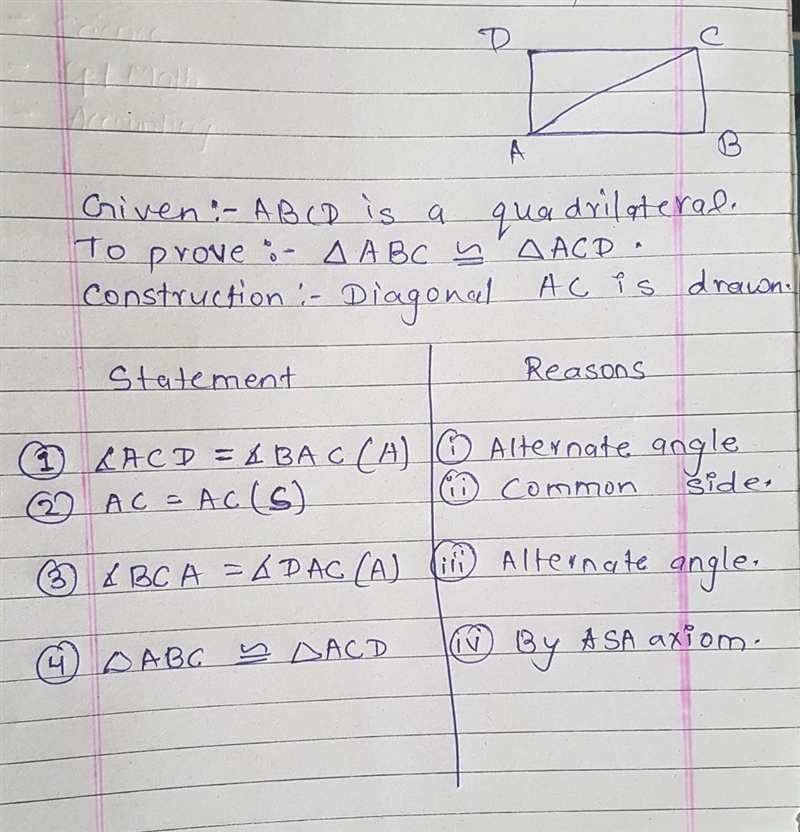 D C
A B
Given :- ABCD is a quadrilateral.
To prove :- △ABC ≅ △ACD.
Construction :- Diagonal AC is drawn.
Statement Reasons
① ∡ACD = ∡BAC (A) ⓘ Alternate angle
② AC = AC (S) (ii) Common side.
③ ∡BCA = ∡DAC (A) (iii) Alternate angle.
④ △ABC ≅ △ACD (iv) By ASA axiom.